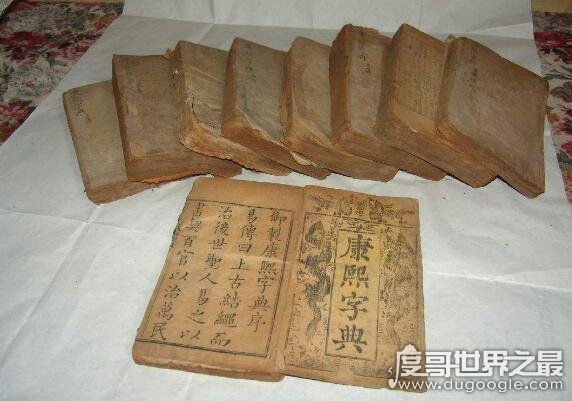 康熙字典
御製康熙字典序
易傳曰上古結繩而
治後世聖人易之以
書契百官以治萬民
度哥世界之最
www.dugoogle.com